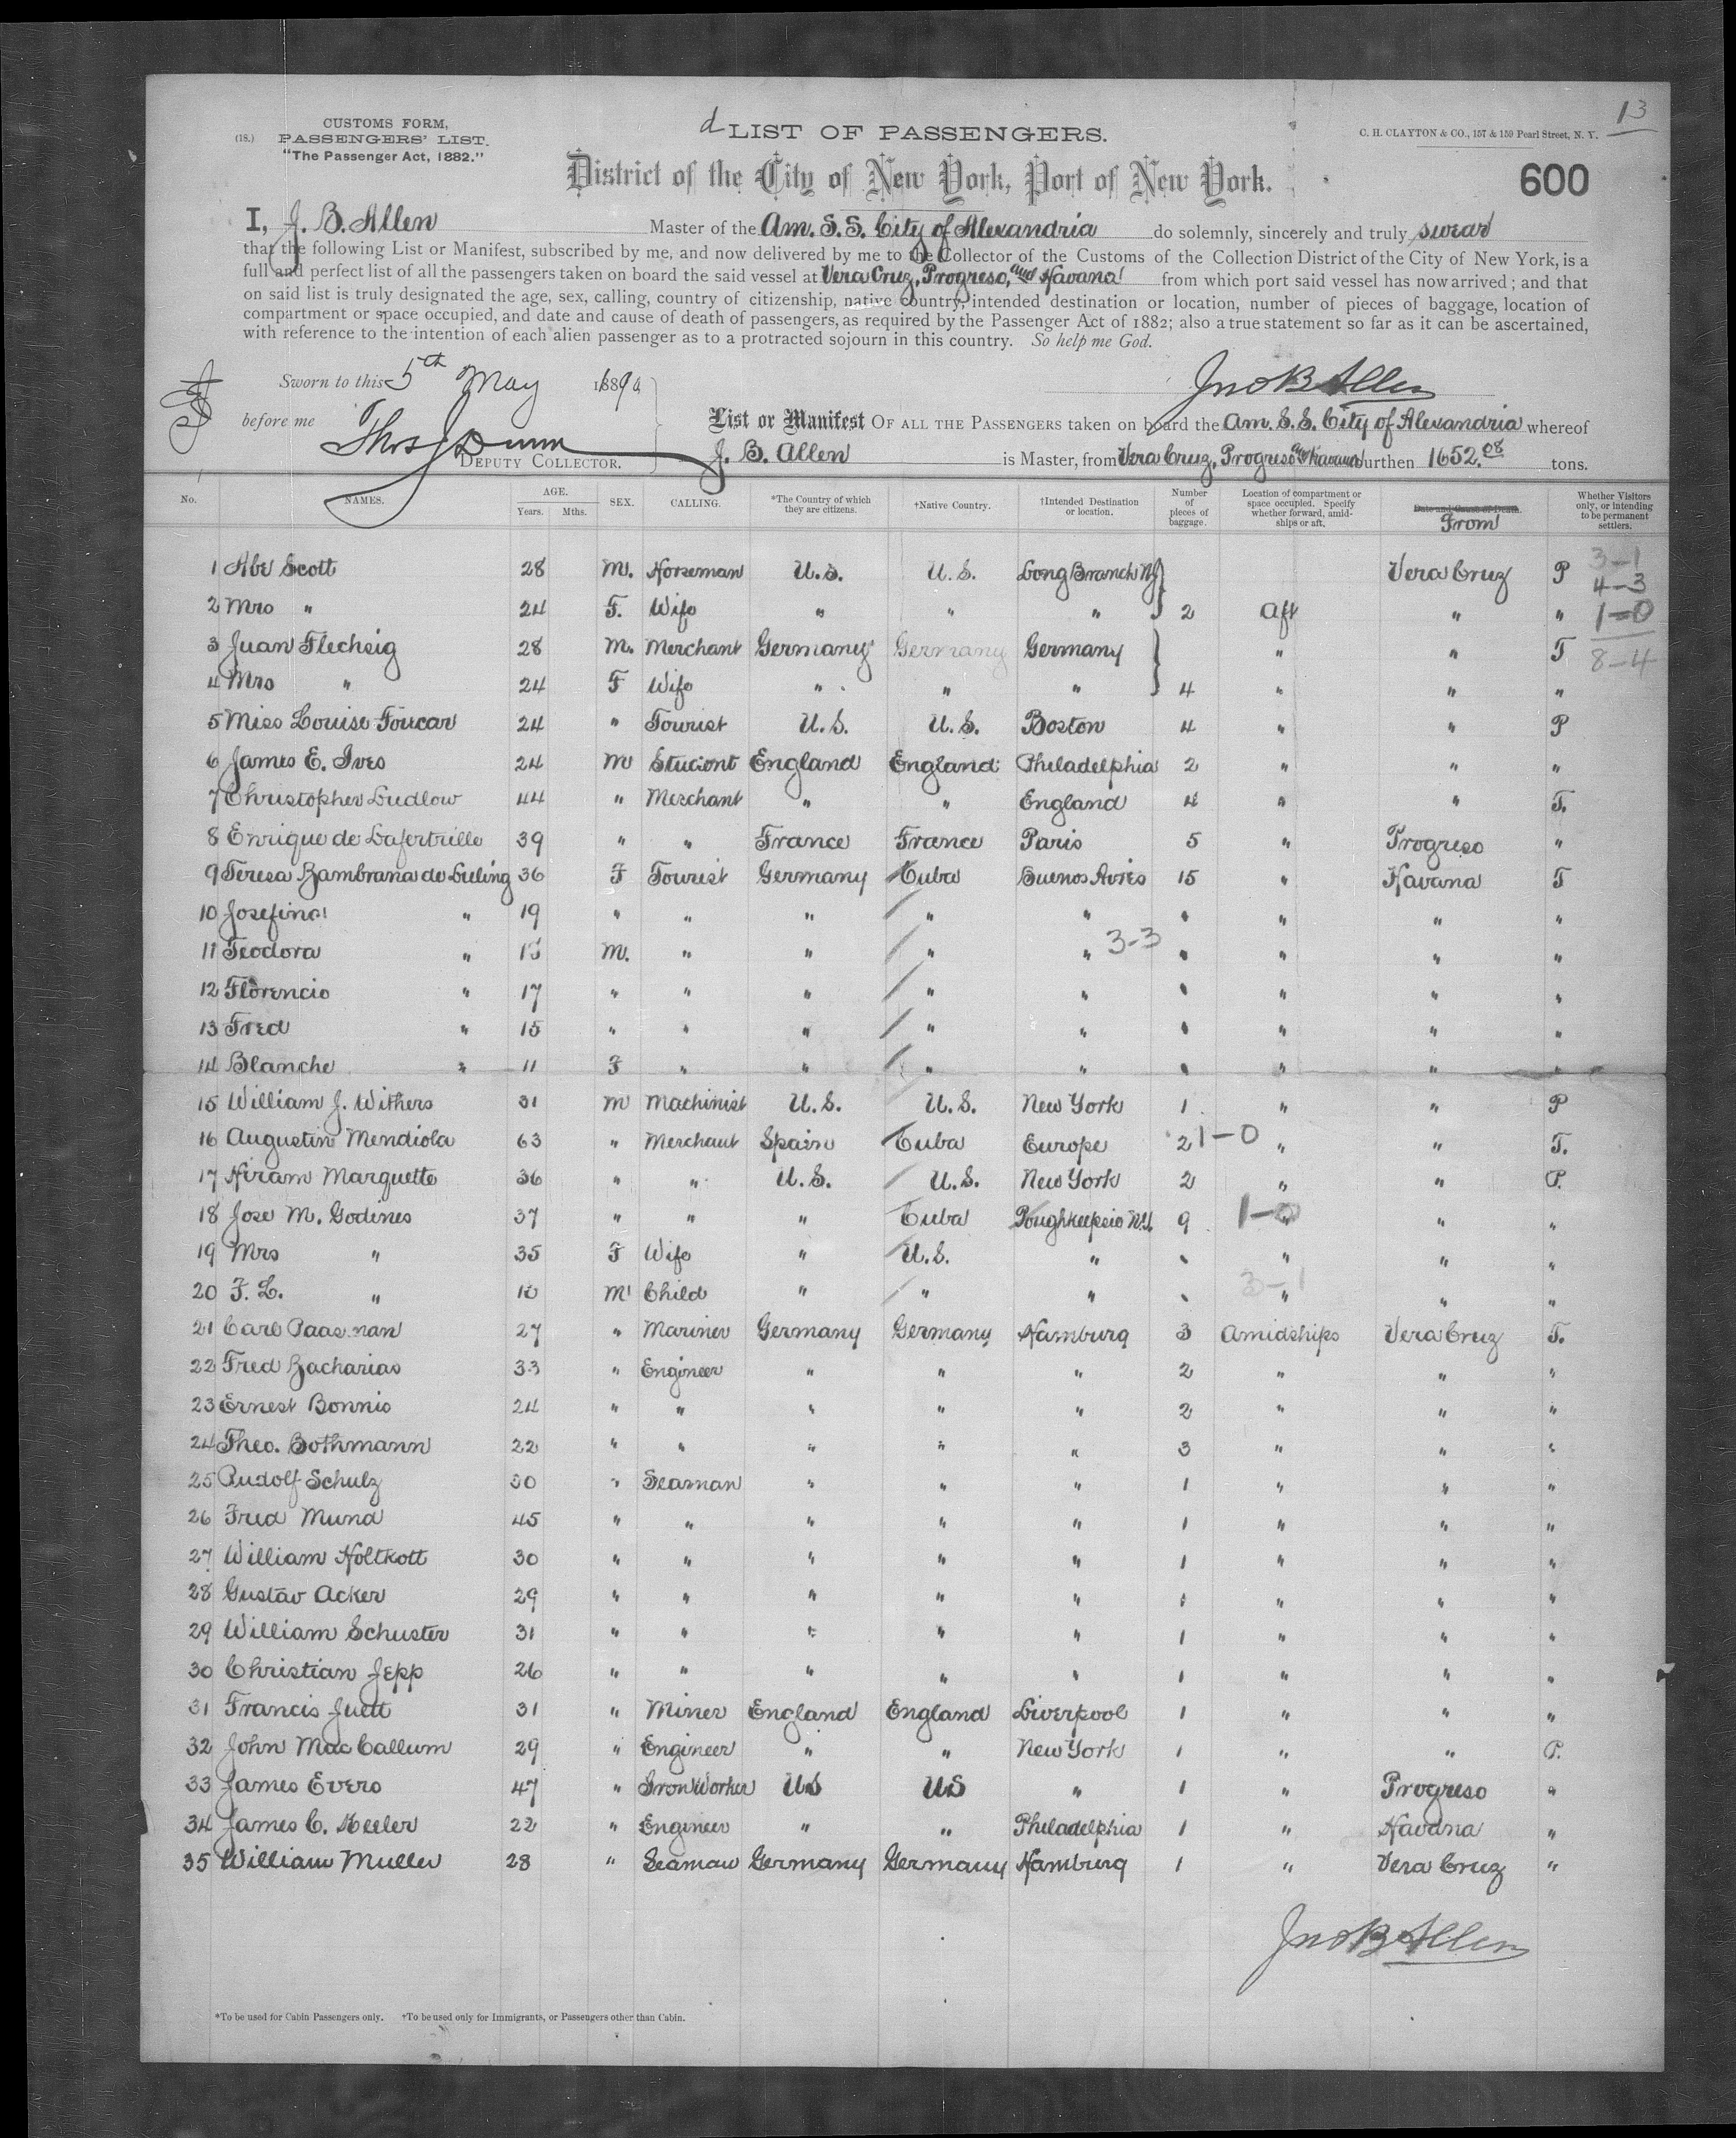 13
CUSTOMS FORM,
(18.) PASSENGERS' LIST.
"The Passenger Act, 1882."
d LIST OF PASSENGERS.
C. H. CLAYTON & CO., 157 & 159 Pearl Street, N. Y.
District of the City of New York, Port of New York.
600
I, J. B. Allen Master of the Am. S. S. City of Alexandria do solemnly, sincerely and truly swear
that the following List or Manifest, subscribed by me, and now delivered by me to the Collector of the Customs of the Collection District of the City of New York, is a
full and perfect list of all the passengers taken on board the said vessel at Vera Cruz, Progreso, and Havana from which port said vessel has now arrived; and that
on said list is truly designated the age, sex, calling, country of citizenship, native country, intended destination or location, number of pieces of baggage, location of
compartment or space occupied, and date and cause of death of passengers, as required by the Passenger Act of 1882; also a true statement so far as it can be ascertained,
with reference to the intention of each alien passenger as to a protracted sojourn in this country. So help me God.
Sworn to this 5th May 1890
Jno B Allen
before me Thos J Dunn
DEPUTY COLLECTOR.
List or Manifest OF ALL THE PASSENGERS taken on board the Am. S. S. City of Alexandria whereof
J. B. Allen is Master, from Vera Cruz, Progreso and Havana burthen 1652.08 tons.
No. NAMES. AGE. Years. Mths. SEX. CALLING. *The Country of which they are citizens. †Native Country. †Intended Destination or location. Number of pieces of baggage. Location of compartment or space occupied. Specify whether forward, amidships or aft. Date and Cause of Death. From Whether Visitors only, or intending to be permanent settlers.
1 Abe Scott 28 M. Horseman U.S. U.S. Long Branch NJ Vera Cruz P 3-1
4-3
2 Mrs " 24 F. Wife " " " 2 Aft " " 1-0
3 Juan Flechsig 28 M. Merchant Germany Germany Germany " " T 8-4
4 Mrs " 24 F Wife " " " 4 " " "
5 Miss Louise Foucar 24 " Tourist U.S. U.S. Boston 4 " " P
6 James E. Ives 24 M Student England England Philadelphia 2 " " "
7 Christopher Ludlow 44 " Merchant " " England 4 " " T.
8 Enrique de Lafertrille 39 " " France France Paris 5 " Progreso "
9 Teresa Zambrana de Luling 36 F Tourist Germany Cuba Buenos Aires 15 " Havana T
10 Josefina " 19 " " " " " " " " "
11 Teodora " M. " " " " 3-3 " " " "
12 Florencio " 17 " " " " " " " " "
13 Fred " 15 " " " " " " " " "
14 Blanche " 11 F " " " " " " " "
15 William J. Withers 31 M Machinist U.S. U.S. New York 1 " " P
16 Augustin Mendiola 63 " Merchant Spain Cuba Europe 2 1-0 " " T.
17 Hiram Marquette 36 " " U.S. U.S. New York 2 " " P.
18 Jose M. Godines 37 " " " Cuba Poughkeepsie N.Y. 9 1-0 " " "
19 Mrs " 35 F Wife " U.S. " " " " "
20 F. L. " 10 M Child " " " " 3-1 " " "
21 Carl Paasman 27 " Mariner Germany Germany Hamburg 3 Amidships Vera Cruz T.
22 Fred Zacharias 33 " Engineer " " " 2 " " "
23 Ernest Bonnis 24 " " " " " 2 " " "
24 Theo. Bothmann 22 " " " " " 3 " " "
25 Rudolf Schulz 30 " Seaman " " " 1 " " "
26 Fred Mund 45 " " " " " 1 " " "
27 William Holtkott 30 " " " " " 1 " " "
28 Gustav Acker 29 " " " " " 1 " " "
29 William Schuster 31 " " " " " 1 " " "
30 Christian Jepp 26 " " " " " 1 " " "
31 Francis Juett 31 " Miner England England Liverpool 1 " " "
32 John MacCallum 29 " Engineer " " New York 1 " " P.
33 James Evers 47 " Iron Worker US US " 1 " Progreso "
34 James C. Keeler 22 " Engineer " " Philadelphia 1 " Havana "
35 William Muller 28 " Seaman Germany Germany Hamburg 1 " Vera Cruz "
Jno B Allen
*To be used for Cabin Passengers only. †To be used only for Immigrants, or Passengers other than Cabin.